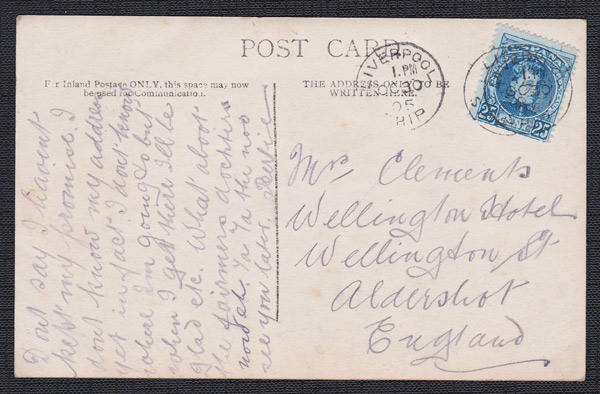 POST CARD
For Inland Postage ONLY, this space may now
be used for Communication.
THE ADDRESS ONLY TO BE
WRITTEN HERE.
LIVERPOOL
1. PM
05
SHIP
25
25
Mrs Clements
Wellington Hotel
Wellington St
Aldershot
England
Dont say I havent
kept my promise. I
dont know my address
yet in fact I dont know
where I'm going to but
when I get there I'll be
Glad etc. What about
the farmers dochters
now Ta Ta the noo
see you later.